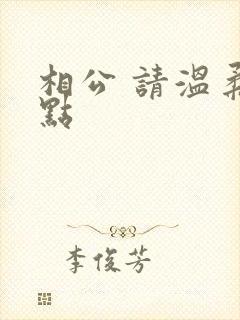 相公 請溫柔
點
李俊芳